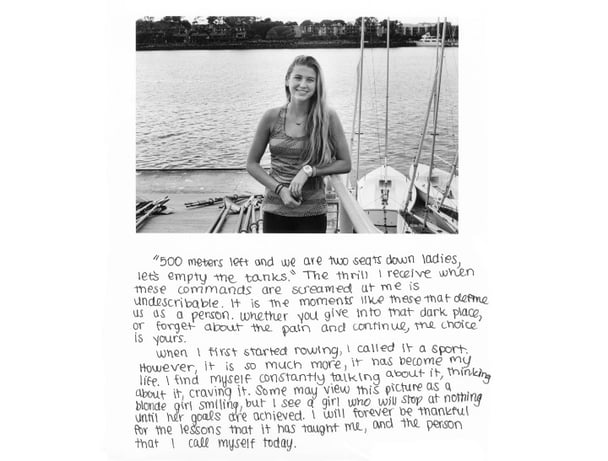 "500 meters left and we are two seats down ladies,
let's empty the tanks." The thrill I receive when
these commands are screamed at me is
undescribable. It is the moments like these that define
us as a person. Whether you give into that dark place,
or forget about the pain and continue, the choice
is yours.
When I first started rowing, I called it a sport.
However, it is so much more, it has become my
life. I find myself constantly talking about it, thinking
about it, craving it. Some may view this picture as a
blonde girl smiling, but I see a girl who will stop at nothing
until her goals are achieved. I will forever be thankful
for the lessons that it has taught me, and the person
that I call myself today.